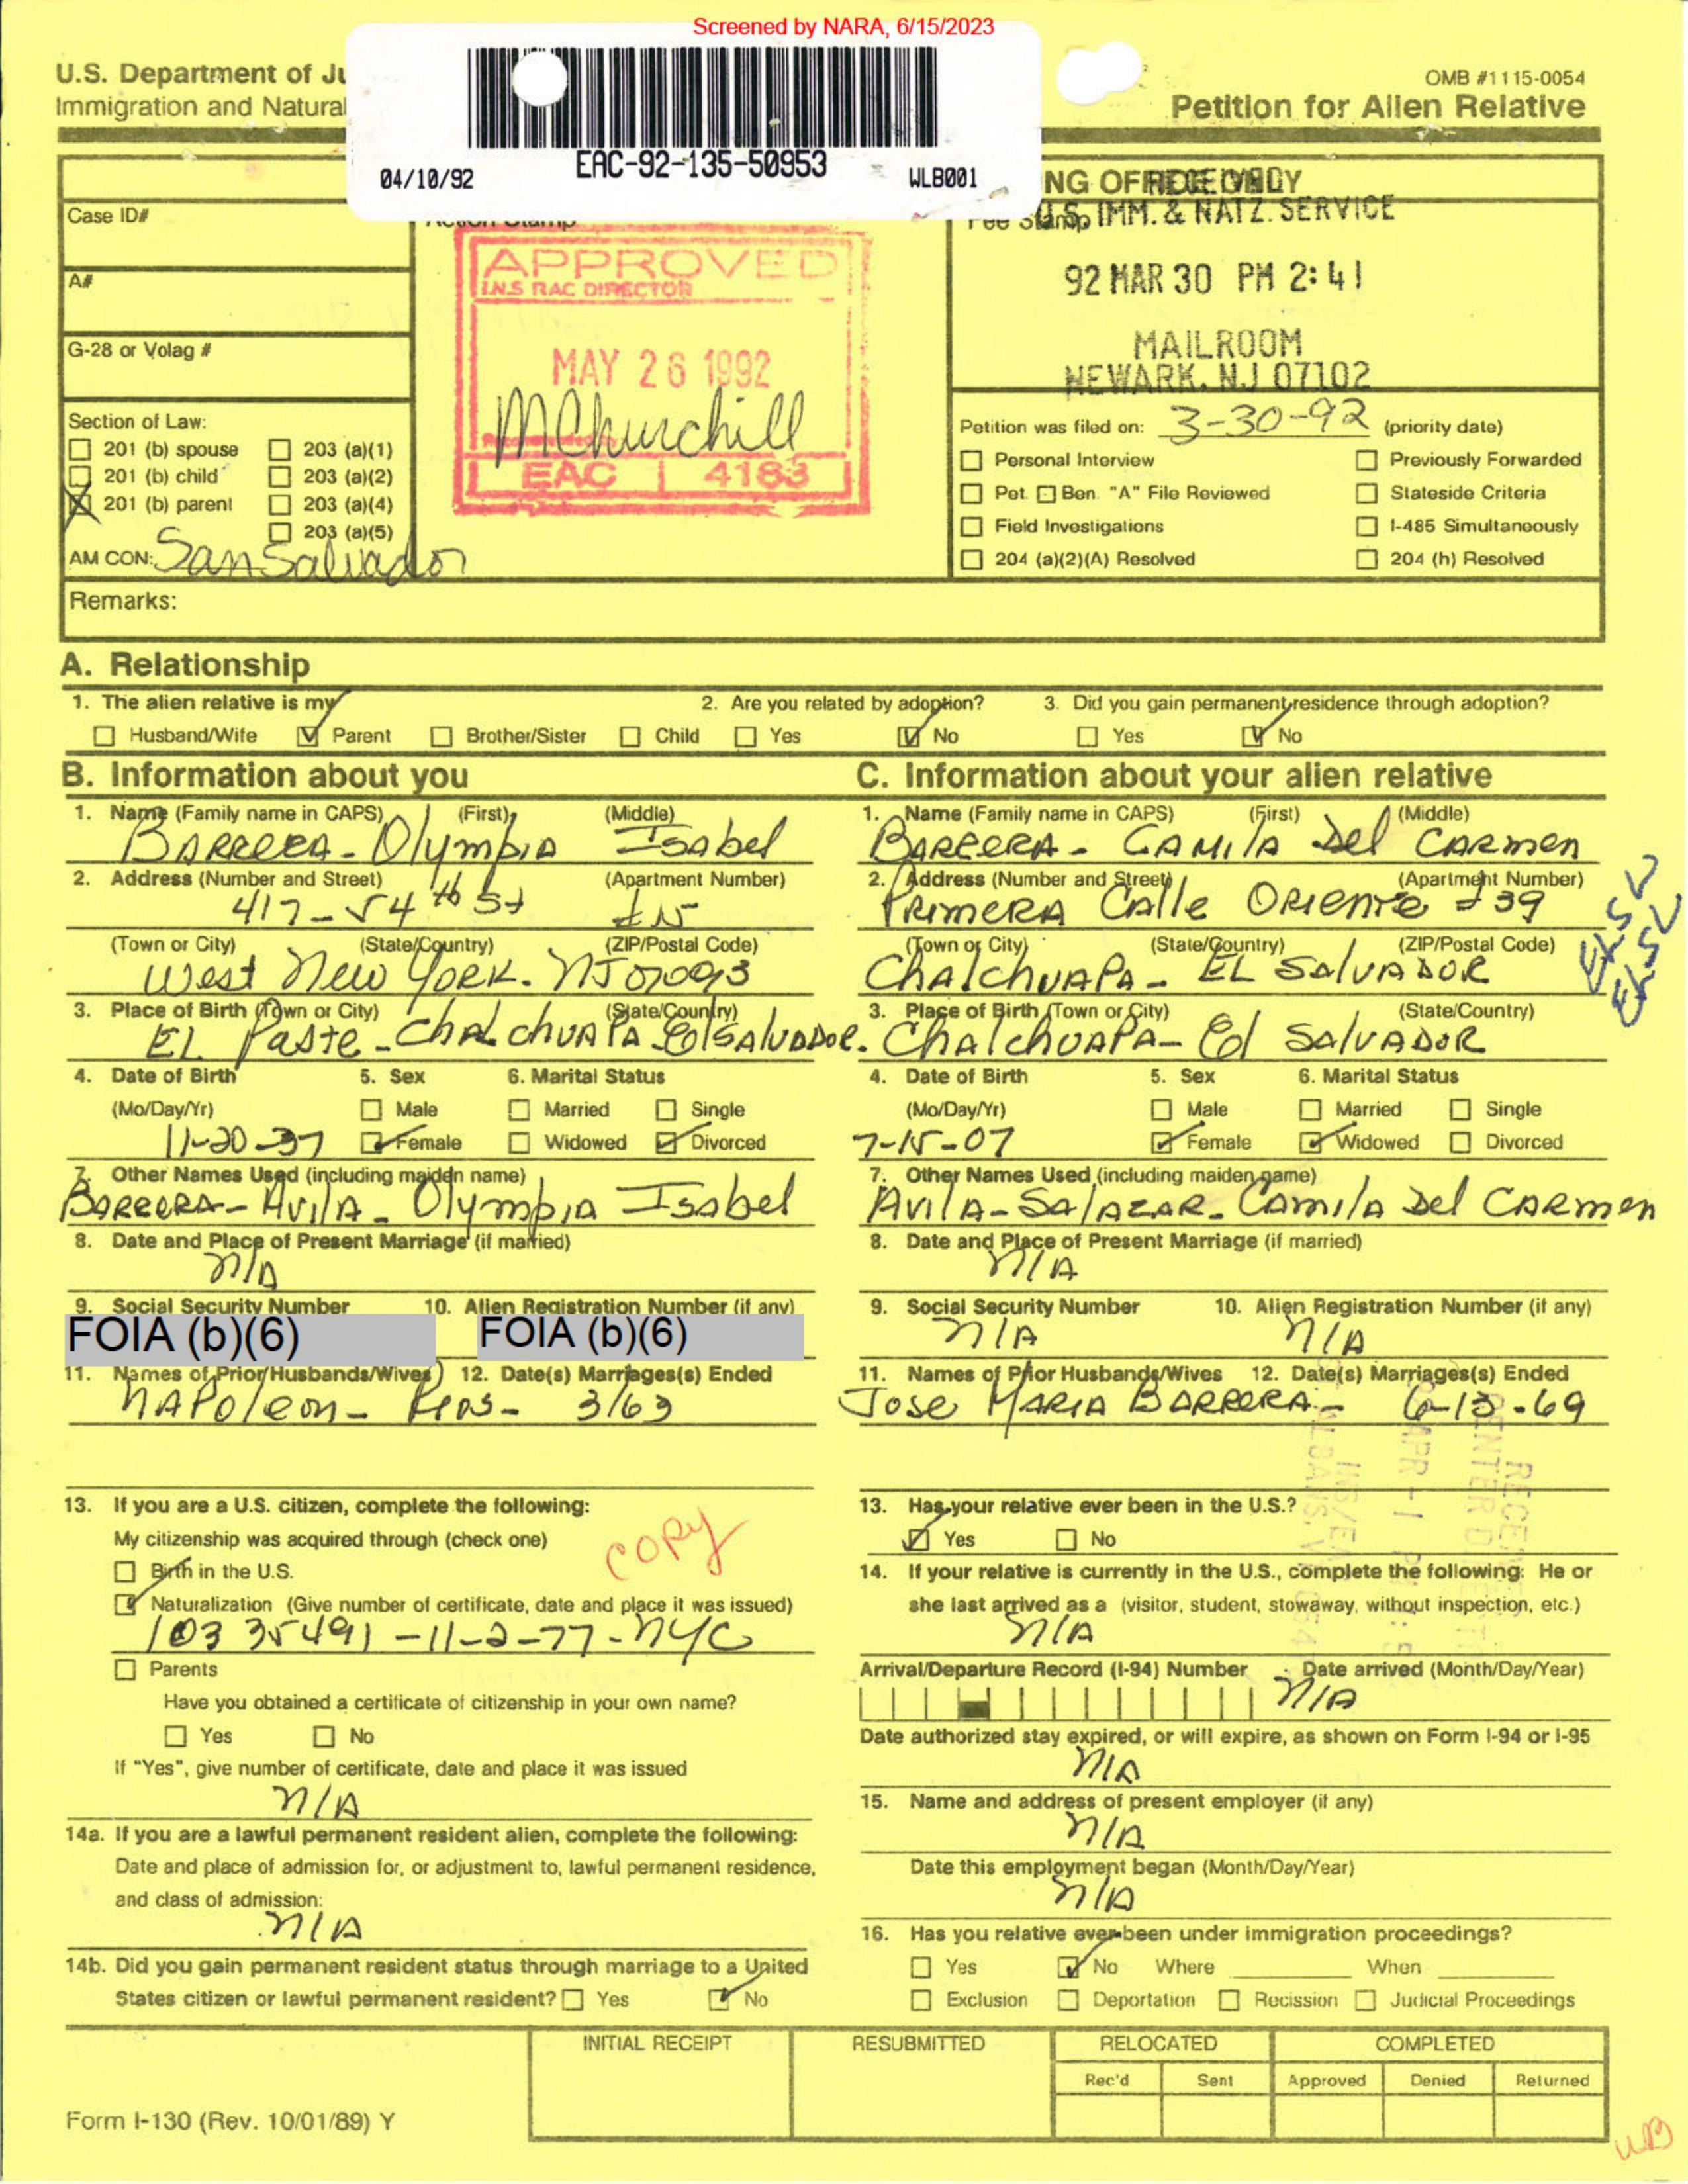 Screened by NARA, 6/15/2023
U.S. Department of Ju
Immigration and Natural
OMB #1115-0054
Petition for Alien Relative
04/10/92 EAC-92-135-50953 WLB001
Case ID#
A#
G-28 or Volag #
Section of Law:
201 (b) spouse 203 (a)(1)
201 (b) child 203 (a)(2)
201 (b) parent 203 (a)(4)
203 (a)(5)
AM CON: San Salvador
Action Stamp
APPROVED
I.N.S RAC DIRECTOR
MAY 26 1992
MChurchill
EAC 4183
Fee Stamp
U.S. IMM. & NATZ. SERVICE
92 MAR 30 PM 2:41
MAILROOM
NEWARK, NJ 07102
Petition was filed on: 3-30-92 (priority date)
Personal Interview Previously Forwarded
Pet. Ben. "A" File Reviewed Stateside Criteria
Field Investigations I-485 Simultaneously
204 (a)(2)(A) Resolved 204 (h) Resolved
Remarks:
A. Relationship
1. The alien relative is my 2. Are you related by adoption? 3. Did you gain permanent residence through adoption?
Husband/Wife Parent Brother/Sister Child Yes No Yes No
B. Information about you
1. Name (Family name in CAPS) (First) (Middle)
BARRERA - Olympia Isabel
2. Address (Number and Street) (Apartment Number)
417 - 54th St #15
(Town or City) (State/Country) (ZIP/Postal Code)
West New York. NJ 07093
3. Place of Birth (Town or City) (State/Country)
EL Paste - Chalchuapa El Salvador.
4. Date of Birth 5. Sex 6. Marital Status
(Mo/Day/Yr) Male Married Single
11-20-37 Female Widowed Divorced
7. Other Names Used (including maiden name)
BARRERA - Avila - Olympia Isabel
8. Date and Place of Present Marriage (if married)
N/A
9. Social Security Number 10. Alien Registration Number (if any)
FOIA (b)(6) FOIA (b)(6)
11. Names of Prior Husbands/Wives 12. Date(s) Marriages(s) Ended
NAPoleon - - 3/63
13. If you are a U.S. citizen, complete the following:
My citizenship was acquired through (check one)
copy
Birth in the U.S.
Naturalization (Give number of certificate, date and place it was issued)
10335491 - 11-2-77 - NYC
Parents
Have you obtained a certificate of citizenship in your own name?
Yes No
If "Yes", give number of certificate, date and place it was issued
N/A
14a. If you are a lawful permanent resident alien, complete the following:
Date and place of admission for, or adjustment to, lawful permanent residence,
and class of admission:
N/A
14b. Did you gain permanent resident status through marriage to a United
States citizen or lawful permanent resident? Yes No
C. Information about your alien relative
1. Name (Family name in CAPS) (First) (Middle)
BARRERA - CAMILA Del CARMEN
2. Address (Number and Street) (Apartment Number)
PRIMERA Calle ORIENTE #39
(Town or City) (State/Country) (ZIP/Postal Code)
ChalchuAPA - EL SALVADOR
3. Place of Birth (Town or City) (State/Country)
ChalchuAPA - El SALVADOR
4. Date of Birth 5. Sex 6. Marital Status
(Mo/Day/Yr) Male Married Single
7-15-07 Female Widowed Divorced
7. Other Names Used (including maiden name)
Avila - SALAZAR - Camila Del CARMEN
8. Date and Place of Present Marriage (if married)
N/A
9. Social Security Number 10. Alien Registration Number (if any)
N/A N/A
11. Names of Prior Husbands/Wives 12. Date(s) Marriages(s) Ended
Jose MARIA BARRERA - 6-13-69
13. Has your relative ever been in the U.S.?
Yes No
14. If your relative is currently in the U.S., complete the following: He or
she last arrived as a (visitor, student, stowaway, without inspection, etc.)
N/A
Arrival/Departure Record (I-94) Number Date arrived (Month/Day/Year)
N/A
Date authorized stay expired, or will expire, as shown on Form I-94 or I-95
N/A
15. Name and address of present employer (if any)
N/A
Date this employment began (Month/Day/Year)
N/A
16. Has you relative ever been under immigration proceedings?
Yes No Where When
Exclusion Deportation Recission Judicial Proceedings
INITIAL RECEIPT RESUBMITTED RELOCATED COMPLETED
Rec'd Sent Approved Denied Returned
Form I-130 (Rev. 10/01/89) Y